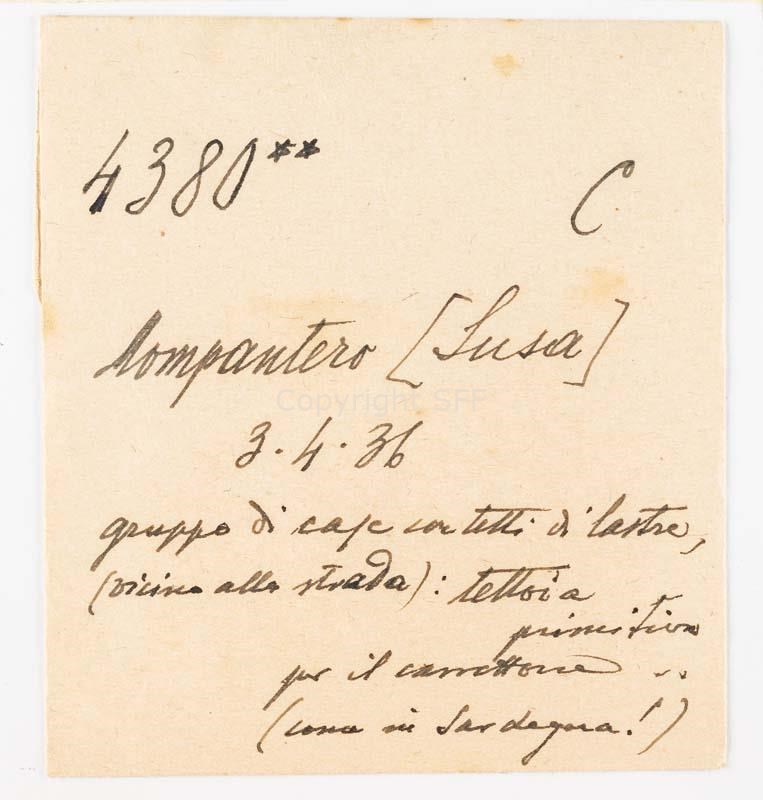 4380**
C
Mompantero [Susa]
Copyright SFF
3.4.36
gruppo di case con tetti di lastre,
(vicino alla strada): tettoia
primitiva
per il carrettone ..
(come in Sardegna!)